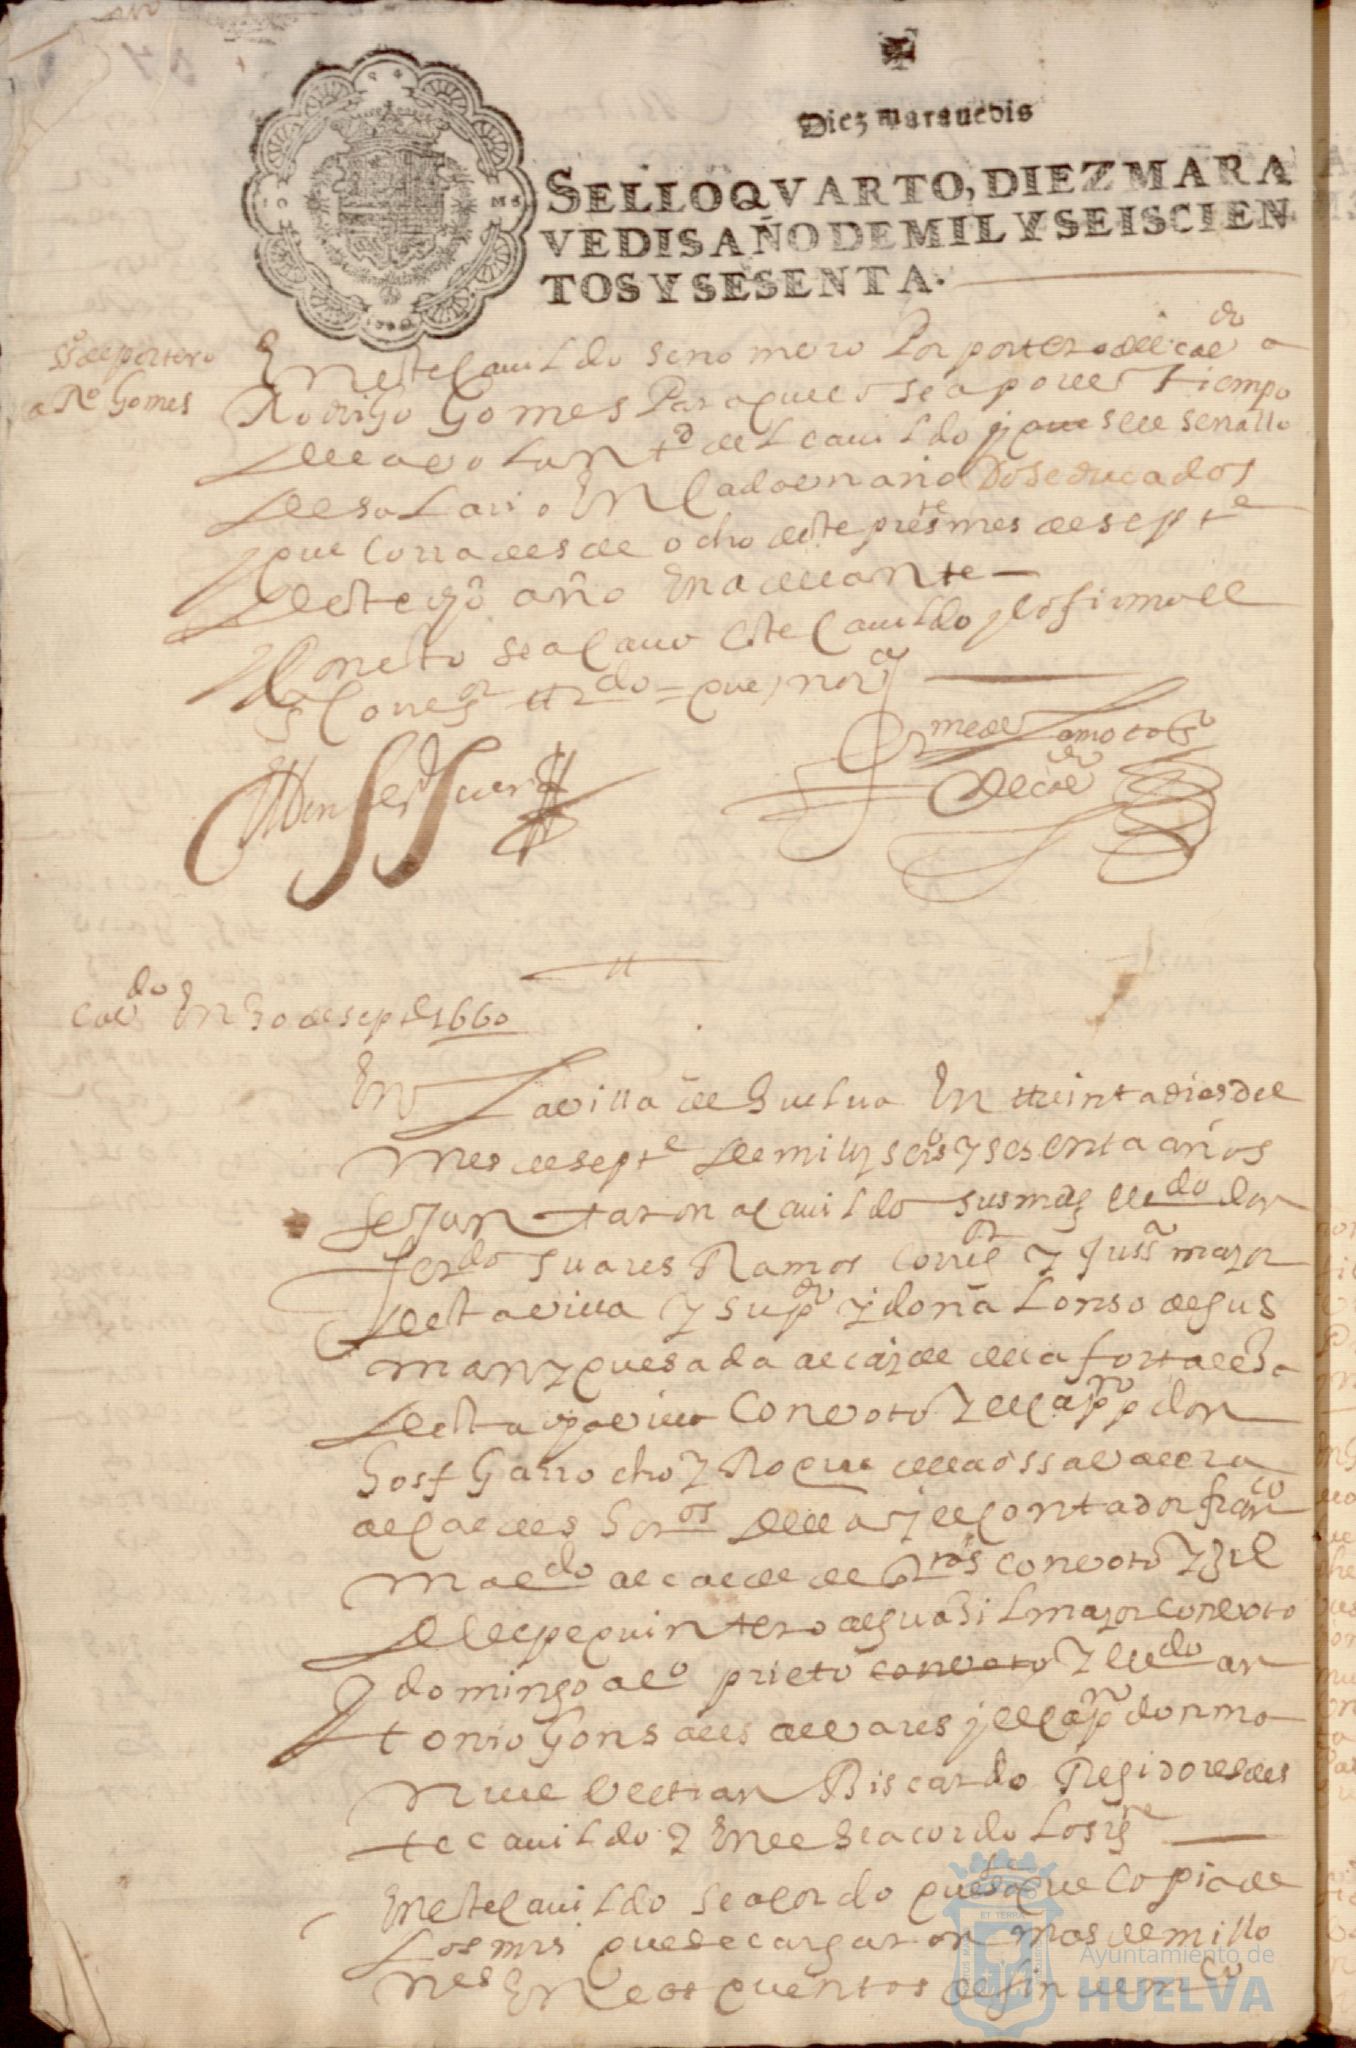 Diez marauedis
SELLO QVARTO, DIEZ MARA
VEDIS AÑO DE MIL Y SEISCIEN
TOS Y SESENTA.
de portero
a Ro Gomes
En este cauildo se nomero Por portero del cavdo a
Rodrigo Gomes Para que lo sea por el tiempo
de la voluntd del cauildo y que se le senallo
de salario En Cada un año Dos ducados
que corra desde ocho deste preste mes de septe
deste dho año En adelante
Con esto se acauo este cauildo y lo firmo el
sr corregor
Suares
de cavdo
cavdo En 30 de septe 1660
En La villa de Guelua En treinta dias del
mes de septe de mill y seiso y sesenta años
se juntaron a cauildo sus mds el ldo don
ferdo Suares Ramos Corregor y Justa mayor
desta villa y su pdo y don alonso de gus
man y quesada alcayde de la fortalesa
desta dha villa con voto y el capn don
Josf Garrocho y Roque de la ossa valera
alcaldes hordos della y el contador franco
maldo alcalde de con voto y Gil
delepe quintero alguasil mayor con voto
domingo alo prieto con voto y el ldo an
tonio Gonsales alvares y el capn don ma
nuel beltran Biscardo Regidores des
te cauildo y En el se acordo Lo sigte
En este cauildo se acordo que saque copia de
Los mrs que se cargaron mas de millo
nes En las quentos de
Ayuntamiento de
HUELVA